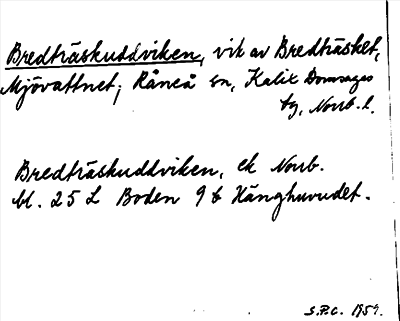 Bredträskuddviken, vik av Bredträsket,
Mjövattnet; Råneå sn, Kalix Domsagas
tg, Norrb. l.
Bredträskuddviken, ek Norrb.
bl. 25 L Boden 9 b Hänghuvudet.
S.P.C. 1959.